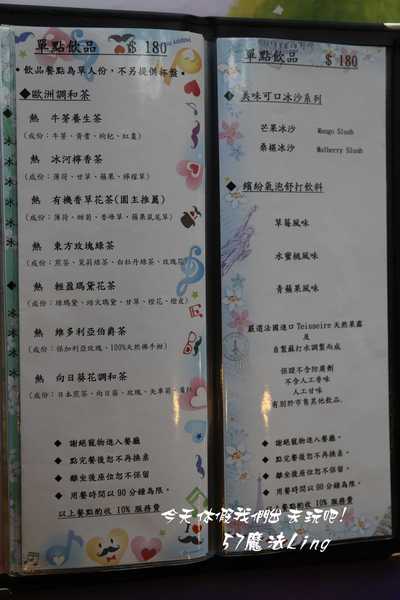 單點飲品 $ 180
・飲品餐點為單人份，不另提供杯盤。
◆歐洲調和茶
熱 牛蒡養生茶
(成份：牛蒡、黃耆、枸杞、紅棗)
熱 冰河檸香茶
(成份：薄荷、甘草、蘋果、檸檬草)
熱 有機香草花茶(園主推薦)
(成份：薄荷、甜菊、香蜂草、蘋果鼠尾草)
熱 東方玫瑰綠茶
(成份：煎茶、茉莉綠茶、白牡丹綠茶、玫瑰花
熱 輕盈瑪黛花茶
(成份：綠瑪黛、焙火瑪黛、甘草、橙花、橙皮)
熱 維多利亞伯爵茶
(成份：保加利亞玫瑰、100%天然佛手柑)
熱 向日葵花調和茶
(成份：日本煎茶、向日葵、玫瑰、矢車菊
◆ 謝絕寵物進入餐廳
◆ 點完餐後恕不再換桌
◆ 離坐後座位恕不保留
◆ 用餐時間以 90 分鐘為限。
以上餐點酌收 10% 服務費
單點飲品 $ 180
◆ 美味可口冰沙系列
芒果冰沙 Mango Slush
桑椹冰沙 Mulberry Slush
◆ 繽紛氣泡舒打飲料
草莓風味
水蜜桃風味
青蘋果風味
嚴選法國進口 Teisseire 天然果露
及
自製蘇打水調製而成
保證不含防腐劑
不含人工香味
人工甘味
有別於市售其他飲品.
◆ 謝絕寵物進入餐廳。
◆ 點完餐後恕不再換桌
◆ 離坐後座位恕不保留。
◆ 用餐時間以 90 分鐘為限。
以上餐點酌收 10% 服務費
今天休假我們出去玩吧!
57魔法Ling